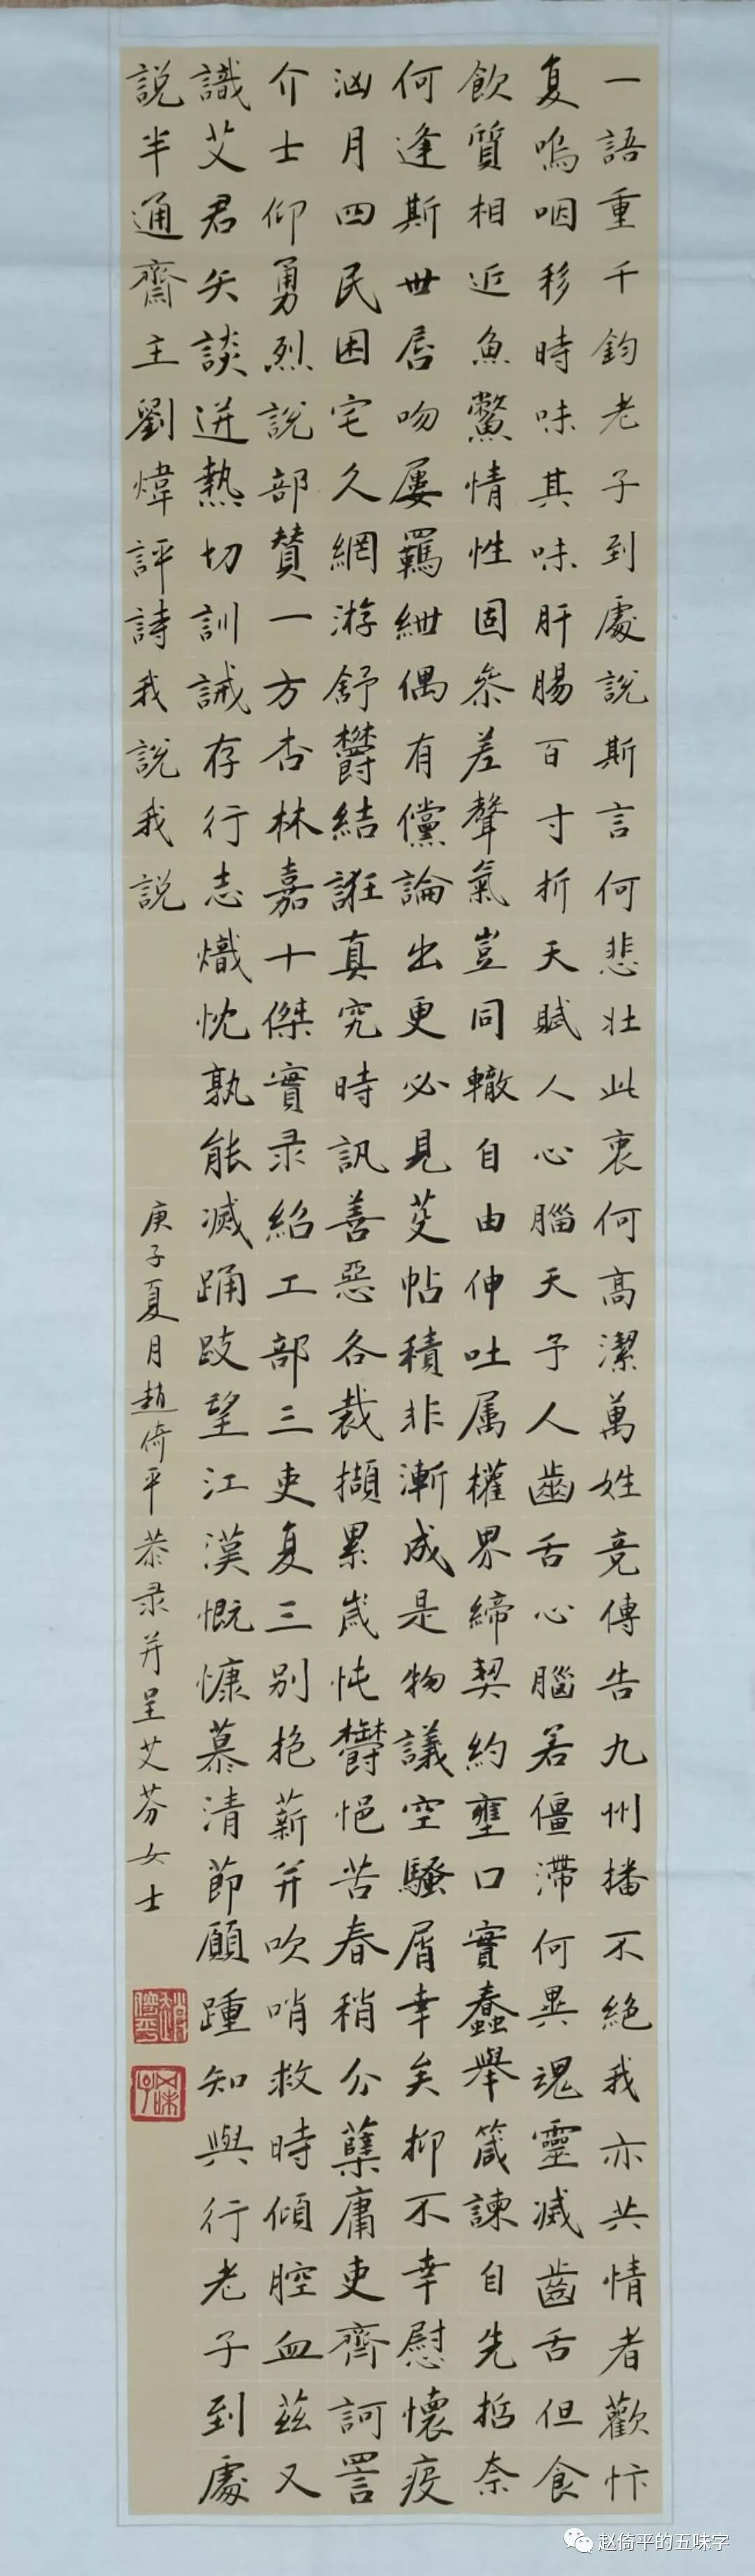 一語重千鈞老子到處說斯言何悲壯此衷何高潔萬姓竞傳告九州播不絕我亦共情者歡忭
复嗚咽移時味其味肝腸百寸折天賦人心腦天予人齒舌心腦若僵滯何異魂靈滅齒舌但食
飲質相近魚鱉情性固參差聲氣豈同轍自由伸吐属權界締契約壅口實蠢舉箴諫自先哲奈
何逢斯世唇吻屢羈紲偶有儻論出更必見芟帖積非漸成是物議空騷屑幸矣抑不幸慰懷疫
汹月四民困宅久網游舒欝結誑真究時訊善惡各裁擷累歲忳欝悒苦春稍公蘖庸吏齊訶詈
介士仰勇烈說部贊一方杏林嘉十傑實录紹工部三吏复三别抱薪并吹哨救時傾腔血兹又
識艾君矢談迸熱切訓誡存行志熾忱孰能滅踊跂望江漢慨慷慕清節願踵知與行老子到處
說半通齋主劉煒評詩我說我說
庚子夏月趙倚平恭录并呈艾芬女士
赵倚平的五味字